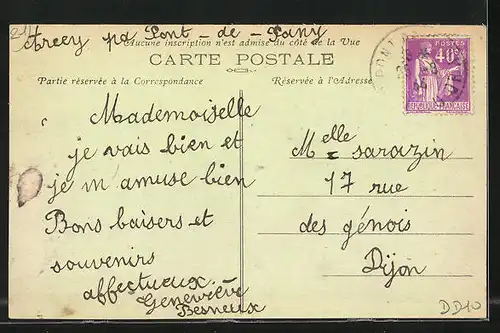 Arcey par Pont-de-Pany
Aucune inscription n'est admise du côté de la Vue
CARTE POSTALE
Partie réservée à la Correspondance
Réservée à l'Adresse
POSTES
40c
REPUBLIQUE FRANÇAISE
Mademoiselle
je vais bien et
je m'amuse bien
Bons baisers et
souvenirs
affectueux.
Geneviève
Besneux
Melle sarazin
17 rue
des génois
Dijon
DD10